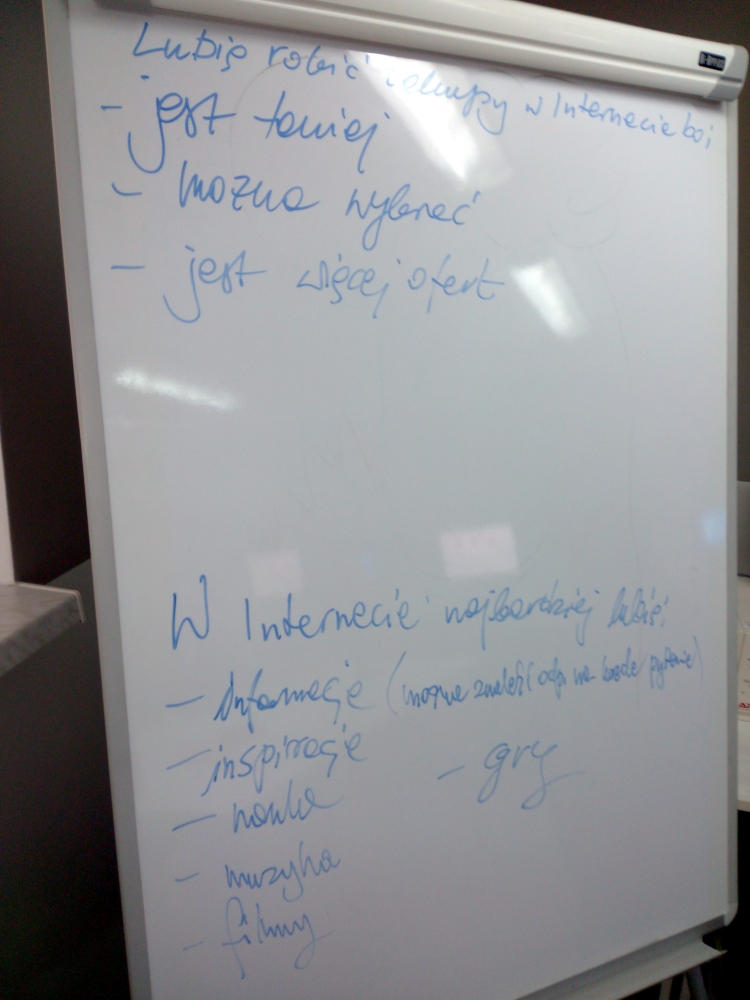 Lubię robić zakupy w Internecie bo:
- jest taniej
- można wybrać
- jest więcej ofert
W Internecie najbardziej lubię:
- Informacje (można znaleźć odp. na każde pytanie)
- inspiracje
- gry
- nauka
- muzyka
- filmy